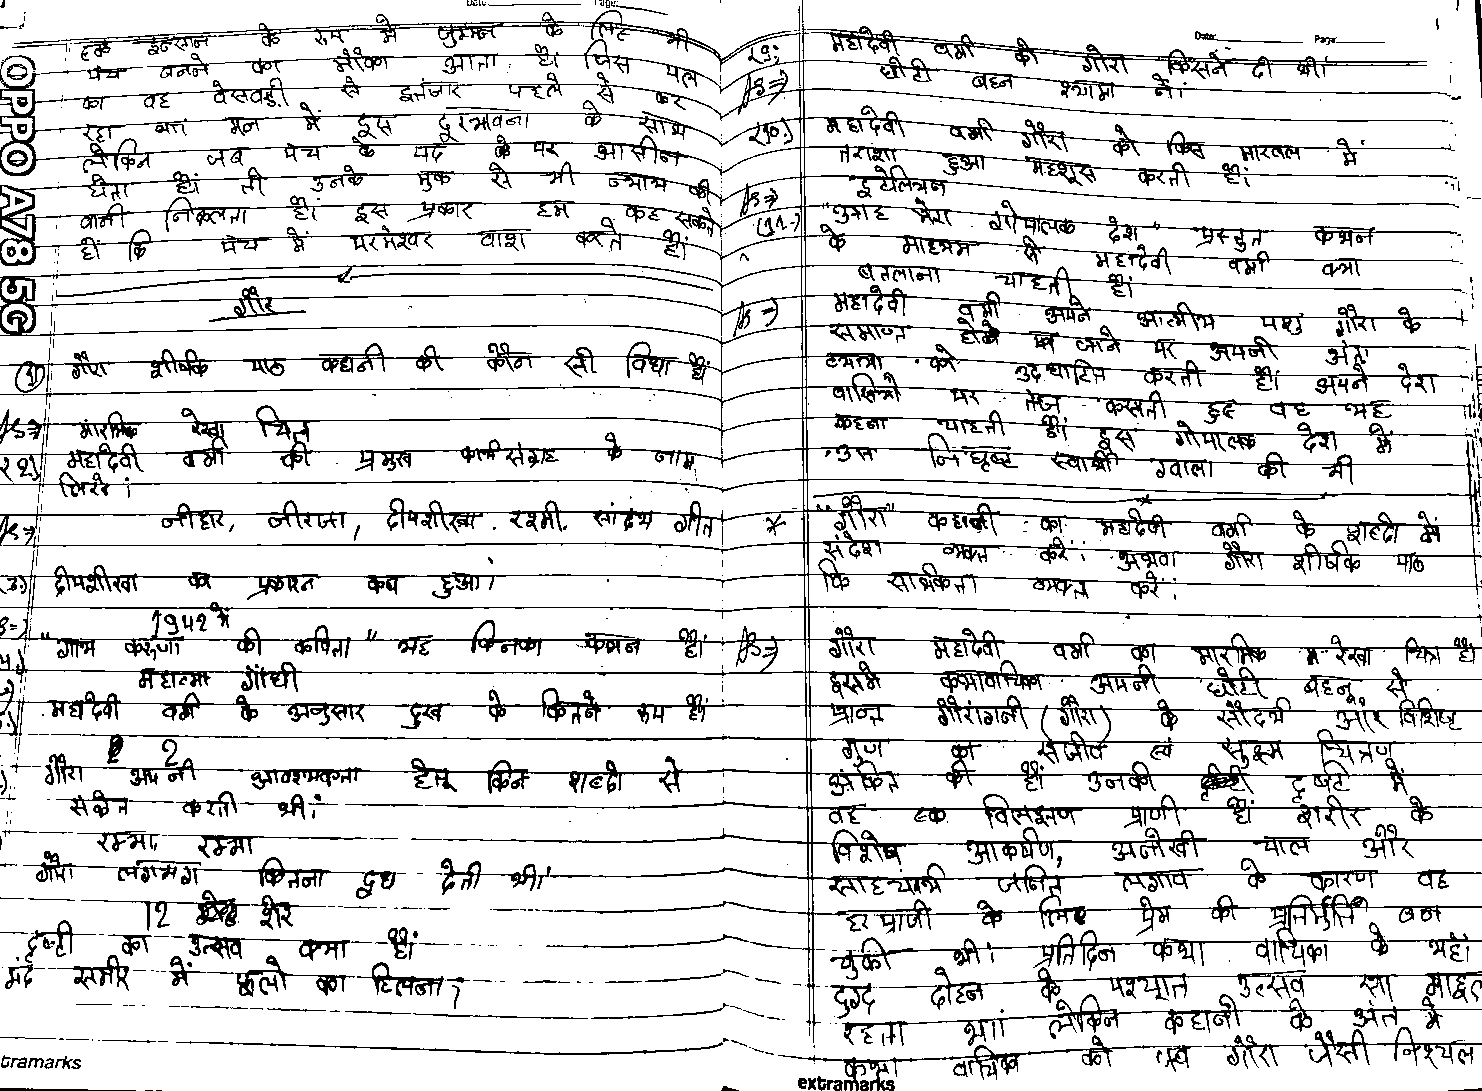 एक इन्सान के रूप में जुम्मन के लिए भी
पंच बनने का मौका आता है। जिस पल
का वह वेसवड़ी से इन्तजार पहले से कर
रहा था। मन में इस दुरभावना के साथ
लेकिन जब पंच के पद के पर आसीन
होता है। तो उनके मुक से भी न्याय की
वानी निकलता है। इस प्रकार हम कह सकते
हैं कि पंच में परमेश्वर वाश करते हैं।
गौरा
(1) गौरा शीर्षक पाठ कहानी की कौन सी विधा है
मारमिक रेखा चित्र
(2) महादेवी वर्मा की प्रमुख काव्यसंग्रह के नाम
लिखे।
नीहार, नीरजा, दीपशीखा, रश्मी, सांध्य गीत
(3) दीपशीखा का प्रकाशन कब हुआ।
1942 में
"गाय करुणा की कविता" यह किनका कथन है।
महात्मा गाँधी
महादेवी वर्मा के अनुसार दुख के कितने रूप हैं।
2
गौरा अपनी आवश्यकता हेतू किन शब्दो से
संकेत करती थी।
रम्भा, रम्भा
गौरा लगभग कितना दूध देती थी।
12 शेर
दृष्टी का उत्सव क्या है।
मंद समीर में फूलो का हिलना।
tramarks
(9) महादेवी वर्मा को गौरा किसने दी थी।
छोटी बहन श्यामा ने।
(10) महादेवी वर्मा गौरा को किस मारवल में
तराशा हुआ महशूस करती है।
इटेलियन
(11) "आह मेरा गोपालक देश" प्रस्तुत कथन
के माध्यम से महादेवी वर्मा क्या
बतलाना चाहती है।
महादेवी वर्मा अपने आत्मीय पशु गौरा के
समाप्त होने जाने पर अपनी अंतः
व्यथा को उदघाटित करती है। अपने देश
वासियो पर तंज कसती हुइ वह यह
कहना चाहती है। इस गोपालक देश में
उस निघृष्ट स्वार्थी ग्वाला की भी
* "गौरा" कहानी का महादेवी वर्मा के शब्दो में
संदेश व्यक्त करें। अथवा गौरा शीर्षक पाठ
कि सार्थकता व्यक्त करें।
गौरा महादेवी वर्मा का मारमिक रेखा चित्र है।
इसमे कथावाचिका अपनी छोटी बहन से
प्राप्त गौरांगनी (गौरा) के सौंदर्य और विशिष्ट
गुण का सजीव एवं सुक्ष्म चित्रण
अंकित की है। उनकी दृष्टि में
वह एक विलक्षण प्राणी है। शरीर के
विशेष आकर्षण, अनोखी चाल और
साहचर्य जनित लगाव के कारण वह
हर प्राणी के लिए प्रेम की प्रतिमूर्ति बन
चुकी थी। प्रतिदिन कथा वाचिका के यहाँ
दुग्द दोहन के पश्चात उत्सव सा माहूल
रहता था। लेकिन कहानी के अंत में
कथा वाचिका को जब गौरा जैसी निश्चल
extramarks
Date: Page:
OPPO A78 5G